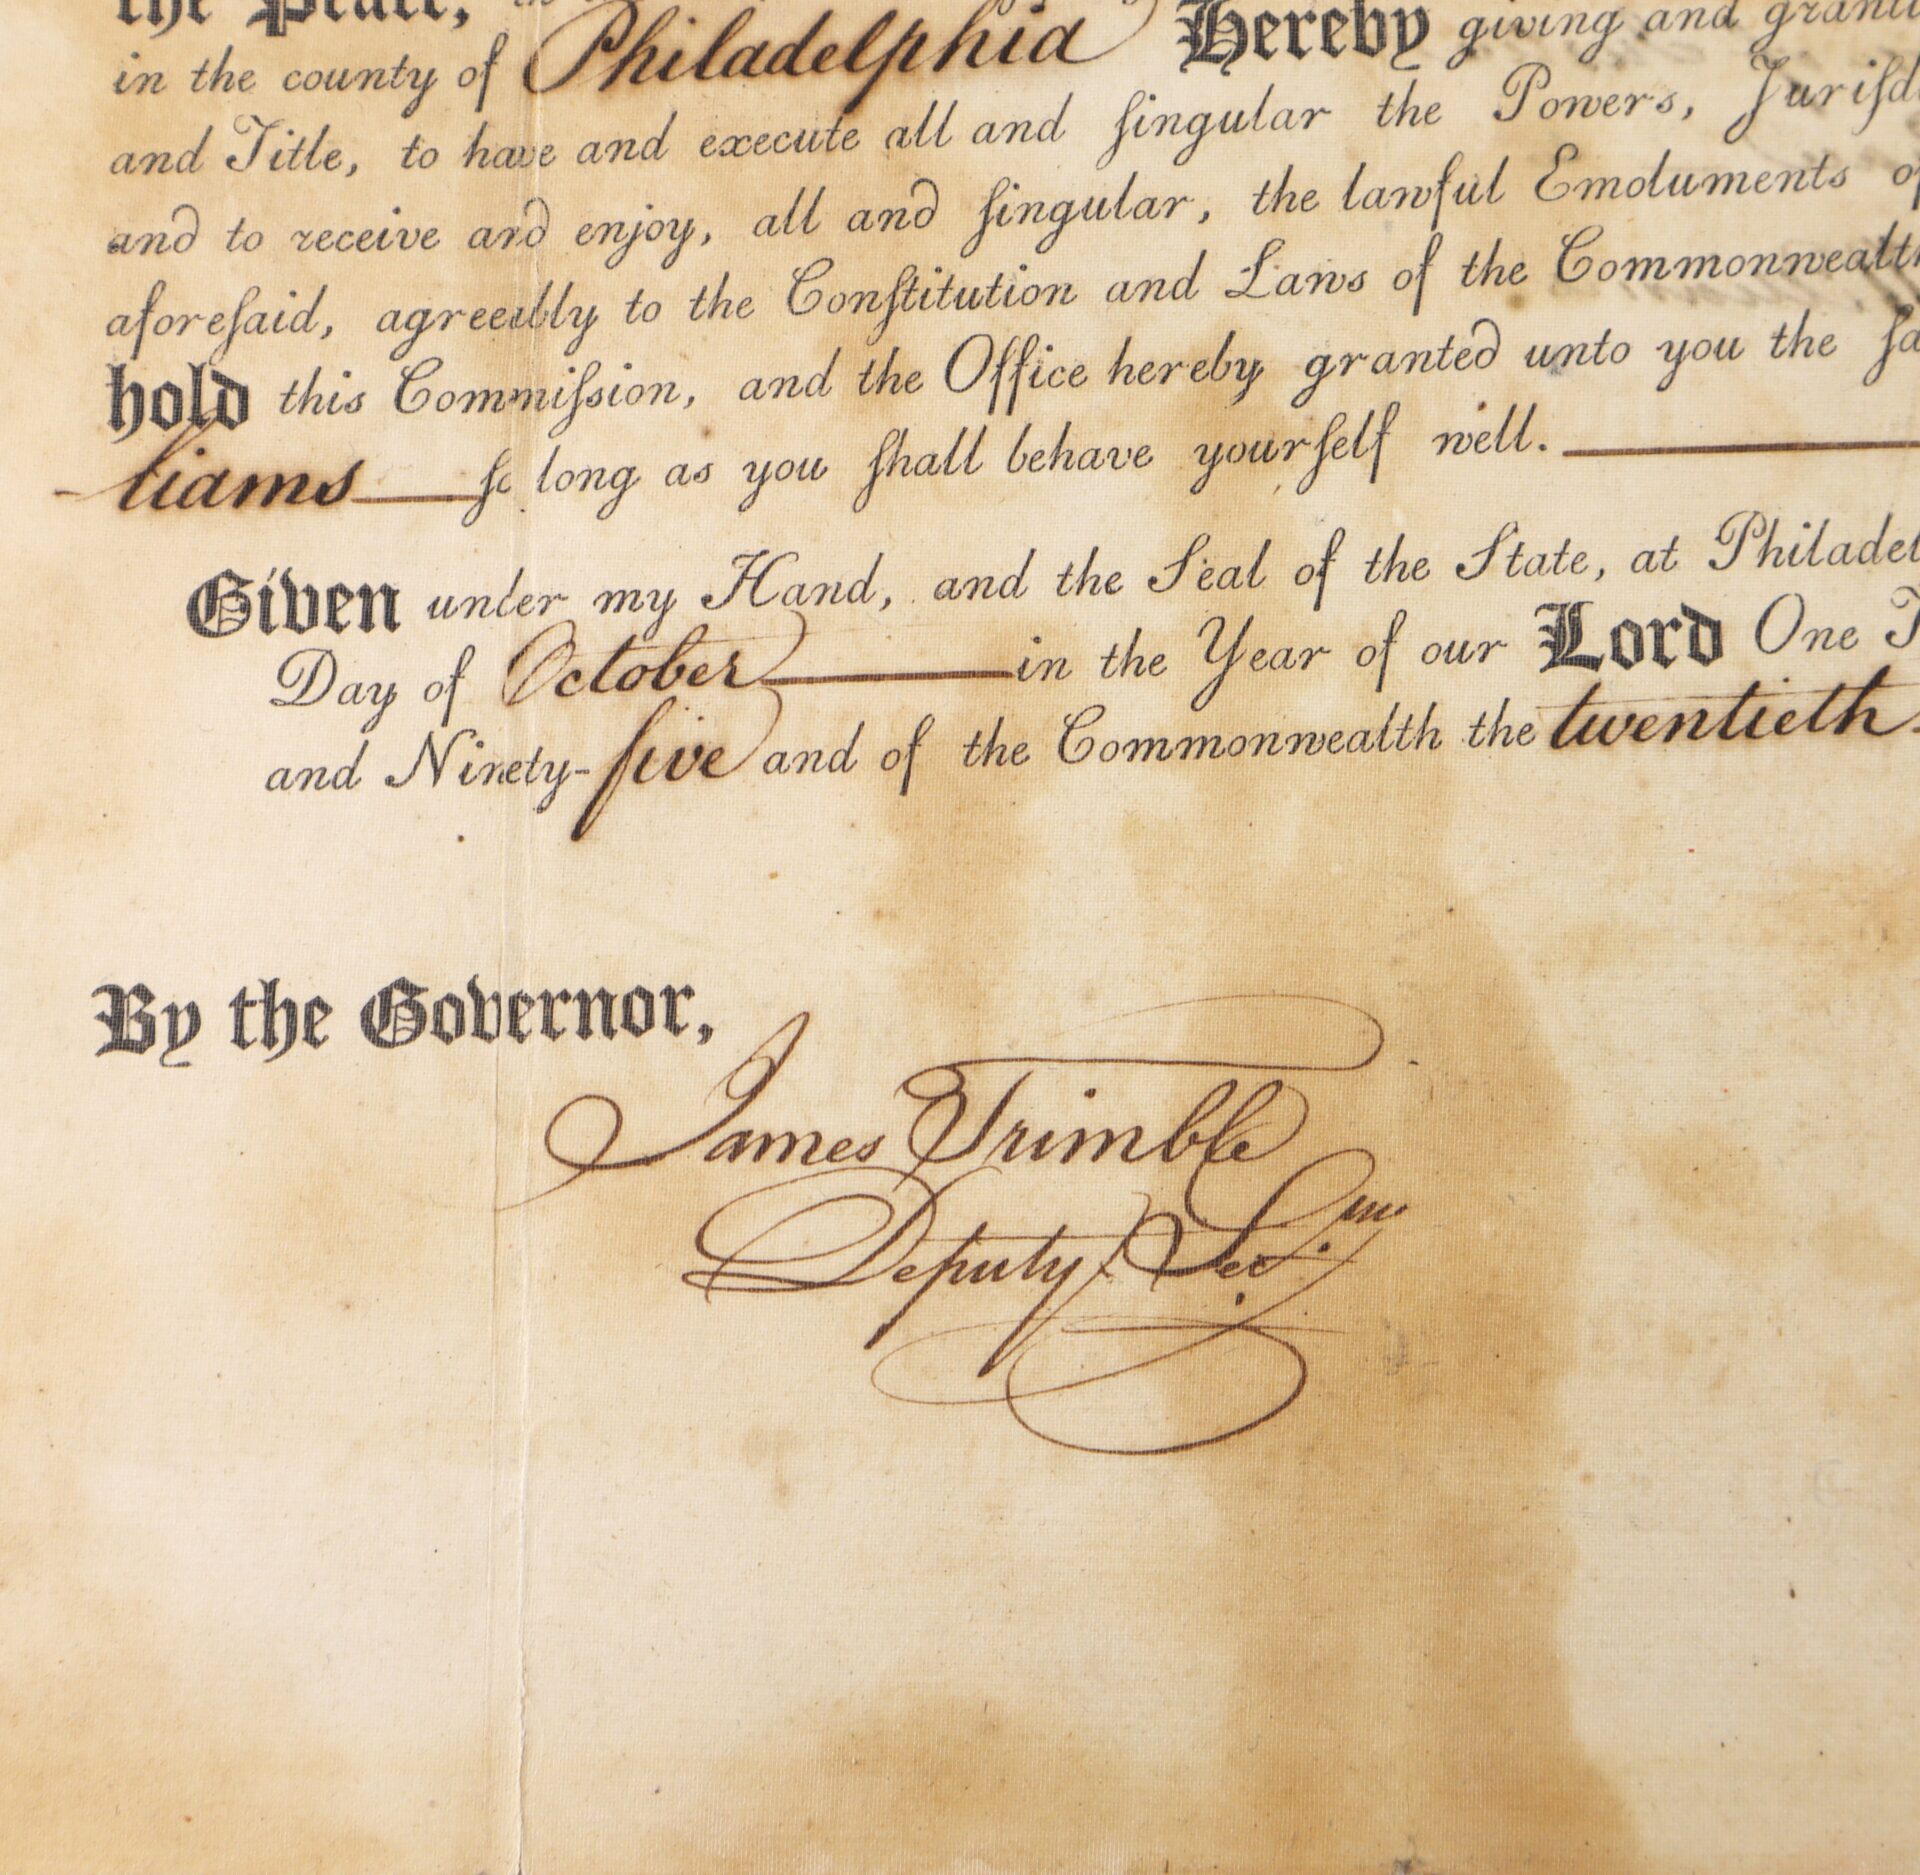 the Peace,
in the county of Philadelphia Hereby giving and
and Title, to have and execute all and ſingular the Powers,
and to receive and enjoy, all and ſingular, the lawful Emoluments
aforeſaid, agreeably to the Conſtitution and Laws of the Commonwealth
hold this Commiſsion, and the Office hereby granted unto you the
liams ſo long as you ſhall behave yourſelf well.
Given under my Hand, and the Seal of the State, at Philadel
Day of October in the Year of our Lord One T
and Ninety-five and of the Commonwealth the twentieth.
By the Governor,
James Trimble
Deputy Secy.